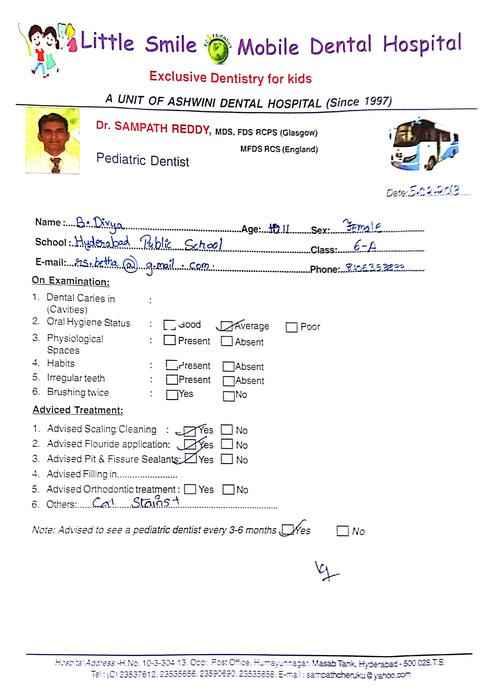 Little Smile Mobile Dental Hospital
Exclusive Dentistry for kids
A UNIT OF ASHWINI DENTAL HOSPITAL (Since 1997)
Dr. SAMPATH REDDY, MDS, FDS RCPS (Glasgow)
MFDS RCS (England)
Pediatric Dentist
Date: 5.02.2013
Name: B. Divya Age: 11 Sex: Female
School: Hyderabad Public School Class: 6-A
E-mail: @ gmail.com Phone:
On Examination:
1. Dental Caries in :
(Cavities)
2. Oral Hygiene Status : Good Average Poor
3. Physiological : Present Absent
Spaces
4. Habits : Present Absent
5. Irregular teeth : Present Absent
6. Brushing twice : Yes No
Adviced Treatment:
1. Advised Scaling Cleaning : Yes No
2. Advised Flouride application: Yes No
3. Advised Pit & Fissure Sealants: Yes No
4. Advised Filling in
5. Advised Orthodontic treatment: Yes No
6. Others: Cal Stains+
Note: Advised to see a pediatric dentist every 3-6 months Yes No
Hospital Address -H.No. 10-3-304/13, Opp. Post Office, Humayunnagar, Masab Tank, Hyderabad - 500 028.T.S
Tel: (C) 23537612, 23535656, 23590690, 23535656, E-mail: sampathcheruku@yahoo.com